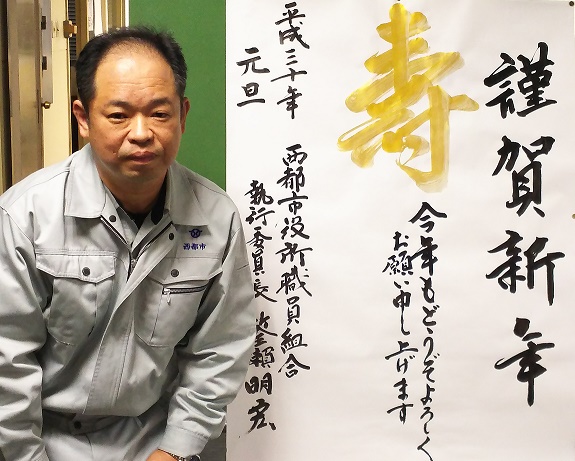 謹賀新年
寿
今年もどうぞよろしく
お願い申し上げます
平成三十年
元旦
西都市役所職員組合
執行委員長
明宏
西都市